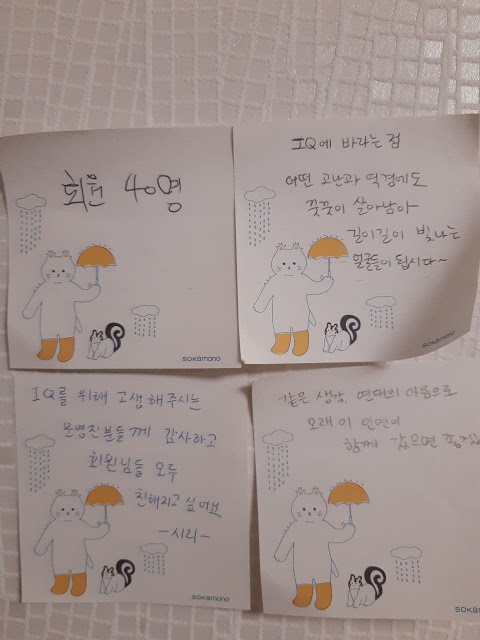 회원 40명
sokamono
IQ에 바라는 점
어떤 고난과 역경에도
꿋꿋이 살아남아
길이길이 빛나는
얼굴들이 됩시다~
sokamono
IQ를 위해 고생해주시는
운영진분들께 감사하고
회원님들 모두
친해지고 싶어요
-시리-
sokamono
같은 생각, 연대의 마음으로
오래 이 인연이
함께 갔으면 좋겠
sokamono